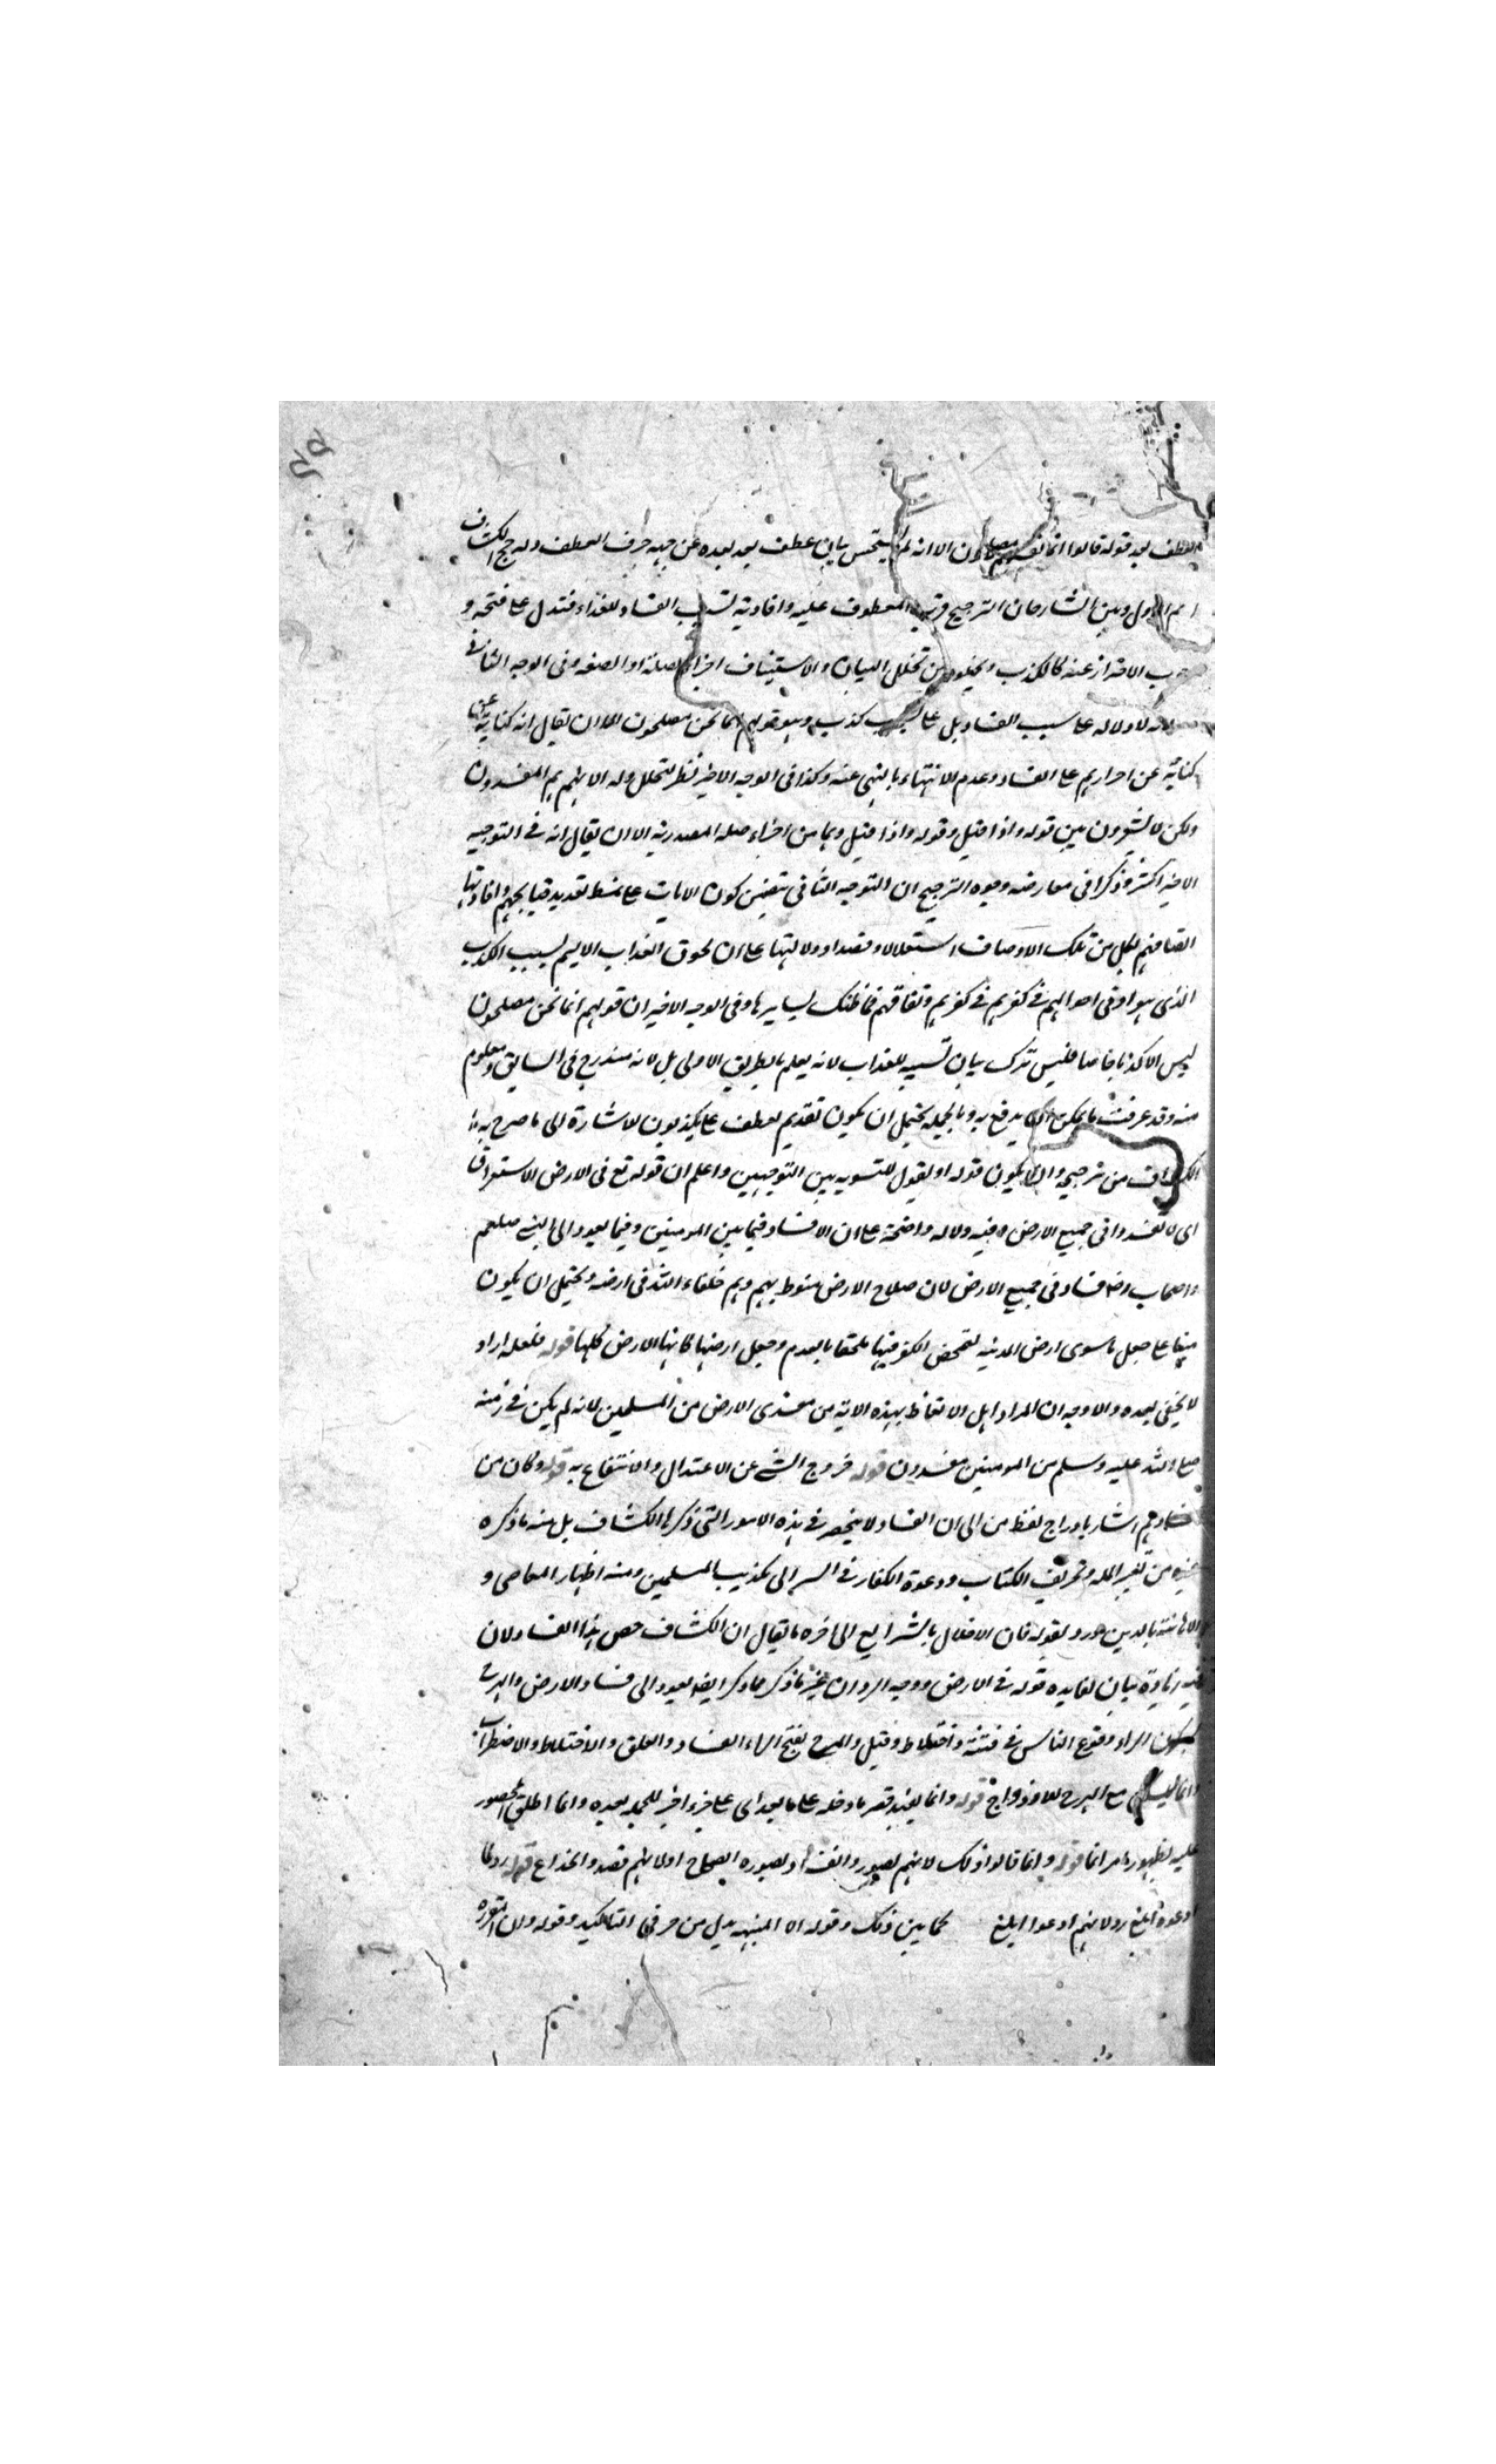 العطف بعد قوله قالوا انما نحن مصلحون الا انه لم يستحسن بيان عطف بعد بعده عن جهة حرف العطف ورجح الكشاف
الاول وبين الشارحان الترجيح قرب المعطوف عليه وافادته تسبب الفساد للعذاب فتدل على قبحه و
وجوب الاحتراز عنه كالكذب وبخلوه من تخلل البيان والاستيناف اجزاء الصلة او الصفة وفى الوجه الثانى
لانه لا دلالة على سبب الفساد بل على تسبب كذب وهو قولهم انما نحن مصلحون الا ان يقال انه كناية
كناية عن اصرارهم على الفساد وعدم الانتهاء بالنهى عنه وكذا فى الوجه الاخير نظر لتخلل قوله الا انهم هم المفسدون
ولكن لا يشعرون بين قوله واذا قيل وقوله واذا قيل وهما من اجزاء صلة المصدرية الا ان يقال انه فى التوجيه
الاخير اكثر وذكرا فى معارضه وجوه الترجيح ان التوجيه الثانى يتضمن كون الايات على نمط تعديد قبايحهم وافادتها
اتصافهم بكل من تلك الاوصاف استقلالا وقصدا ودلالتها على ان لحوق العذاب الاليم بسبب الكذب
الذى هو ادنى احوالهم فى كفرهم ونفاقهم فما ظنك بسايرها وفى الوجه الاخير ان قولهم انما نحن مصلحون
ليس الا كذبا خاصا فليس ترك بيان تسببه للعذاب لانه يعلم بالطريق الاولى بل لانه مندرج فى السابق ومعلوم
منه وقد عرفت ما يمكن ان يدفع به وبالجملة يحتمل ان يكون تقديم العطف على يكذبون للاشارة الى ما صرح به
الكشاف من ترجيحه وان يكون قوله او يقول للتسوية بين التوجيهين واعلم ان قوله تع فى الارض الاستغراق
اى لا تفسدوا فى جميع الارض وفيه دلالة واضحة على ان الافساد فيما بين المومنين وفيما يعود الى النبى صلعم
واصحابه افساد فى جميع الارض لان صلاح الارض منوط بهم وهم خلفاء الله فى ارضه ويحتمل ان يكون
مبنيا على جعل ما سوى ارض المدينه لتمحض الكفر فيها ملحقا بالعدم وجعل ارضها كانها الارض كلها قوله فلعله اراد
لا يخفى بعده والاوجه ان المراد اهل الاتعاظ بهذه الاية من مفسدى الارض من المسلمين لانه لم يكن فى زمنه
صلى الله عليه وسلم من المومنين مفسدون قوله خروج الشى عن الاعتدال والانتفاع به قوله وكان من
فسادهم اشار بادراج لفظ من الى ان الفساد لا ينحصر فى هذه الامور التى ذكرها الكشاف بل منه ما ذكره
غيره من تغيير الملة وتحريف الكتاب ودعوة الكفار فى السر الى تكذيب المسلمين ومنه اظهار المعاصى و
الاهانة بالدين ورد بقوله فان الاخلال بالشرايع الى اخره ما يقال ان الكشاف خص هذا الفساد لان
فيه زيادة بيان لفايده قوله فى الارض ووجه الرد ان غير ما ذكر مما ذكر ايضا يعود الى فساد الارض والهرج
بسكون الراء وقوع الناس فى فتنة واختلاط وقتل والمرج بفتح الراء الفساد والقلق والاختلاط والاضطراب
وانما يسكن مع الهرج للازدواج قوله وانما يفيد قصر ما دخله على ما بعده اى على جزء اخر للجملة بعده وانما اطلق المحصور
عليه لظهور امر انما قوله وانما قالوا ذلك لانهم تصوروا الفساد بصورة الصلاح او لانهم قصدوا الخداع قوله رد لما
ادعوه ابلغ رد لانهم ادعوا ابلغ كما يبين ذلك وقوله الا المنبهه بدل من حرفى التاكيد وقوله وان المقررة